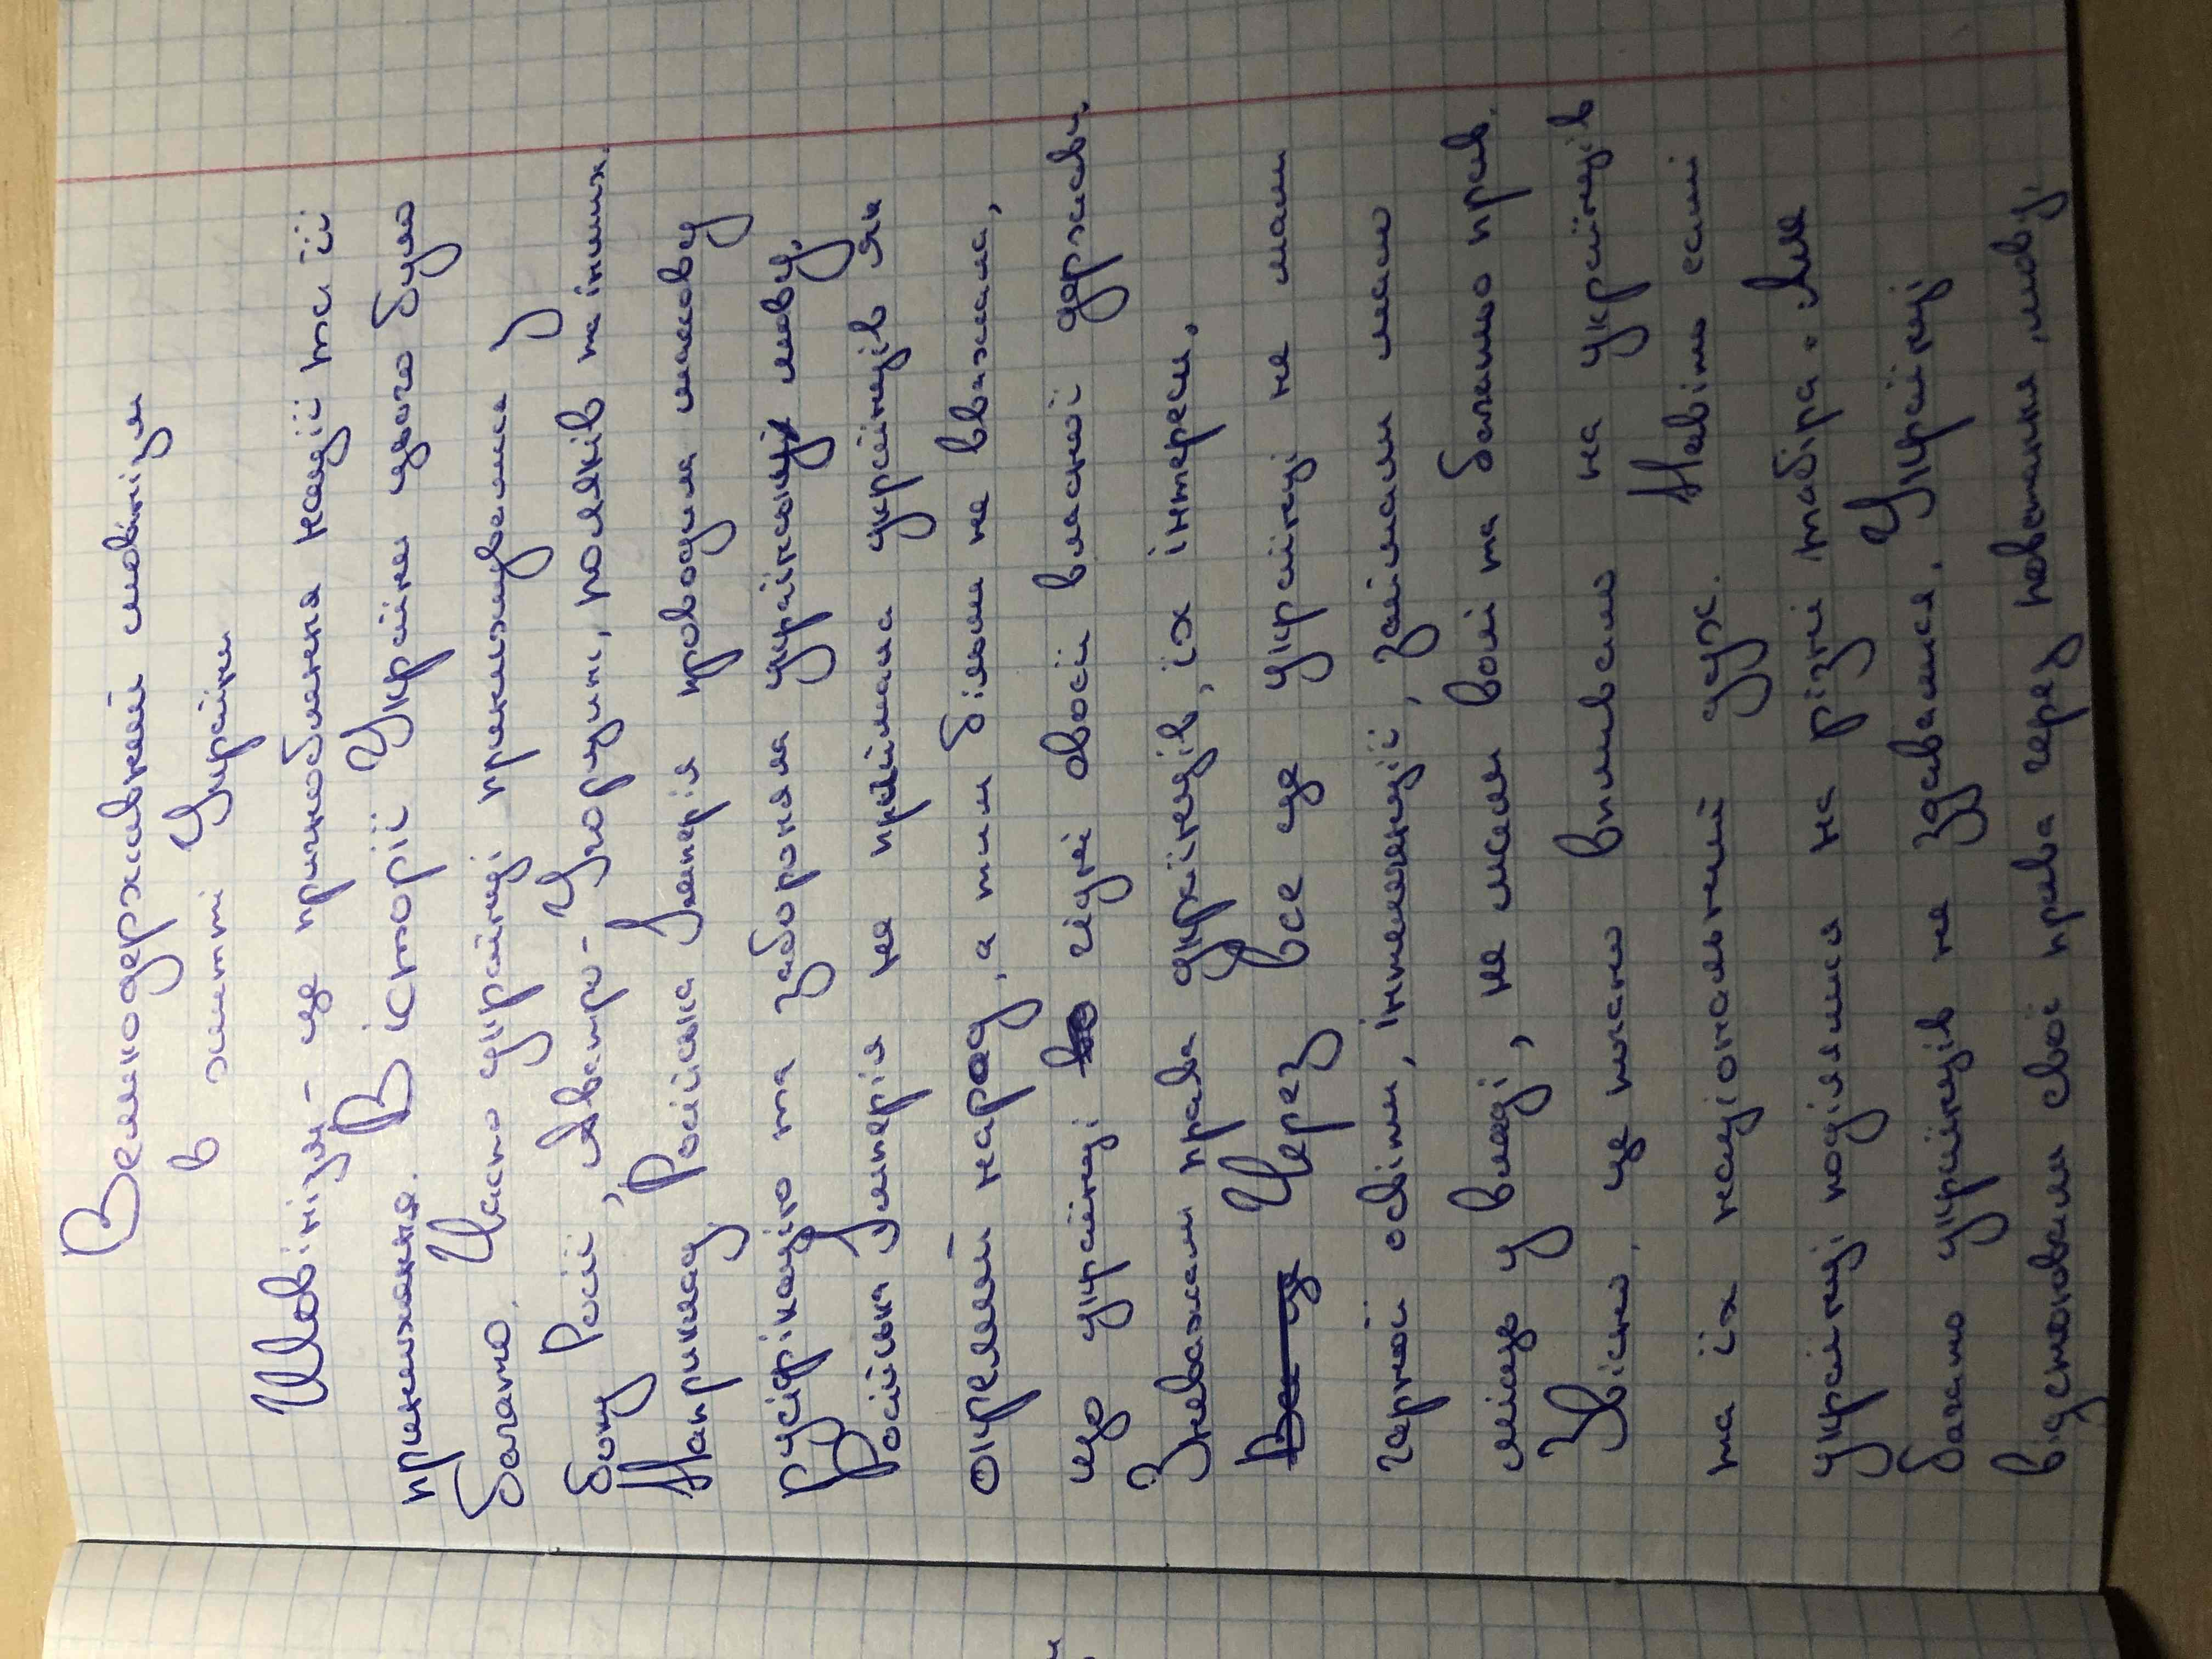 Великодержавний шовінізм
в житті України
Шовінізм - це приниження нації та її
приниження. В історії України цього було
багато. Часто українці принижувалися з
боку Росії, Австро-Угорщини, поляків та інших.
Наприклад, Російська Імперія проводила мовну
русифікацію та забороняла українську мову.
Російська Імперія не приймала українців як
окремий народ, а тим більше не вважала,
що українці гідні своєї власної держави.
Зневажали права українців, їх інтереси.
Через все це українці не мали
гарної освіти, інтелігенції, займали мало
місць у владі, не мали волі та багато прав.
Звісно, це погано впливало на українців
та їх національний дух. Навіть самі
українці поділилися на різні табори. Але
багато українців не здавалися. Українці
відстоювали свої права через повстання, мову,